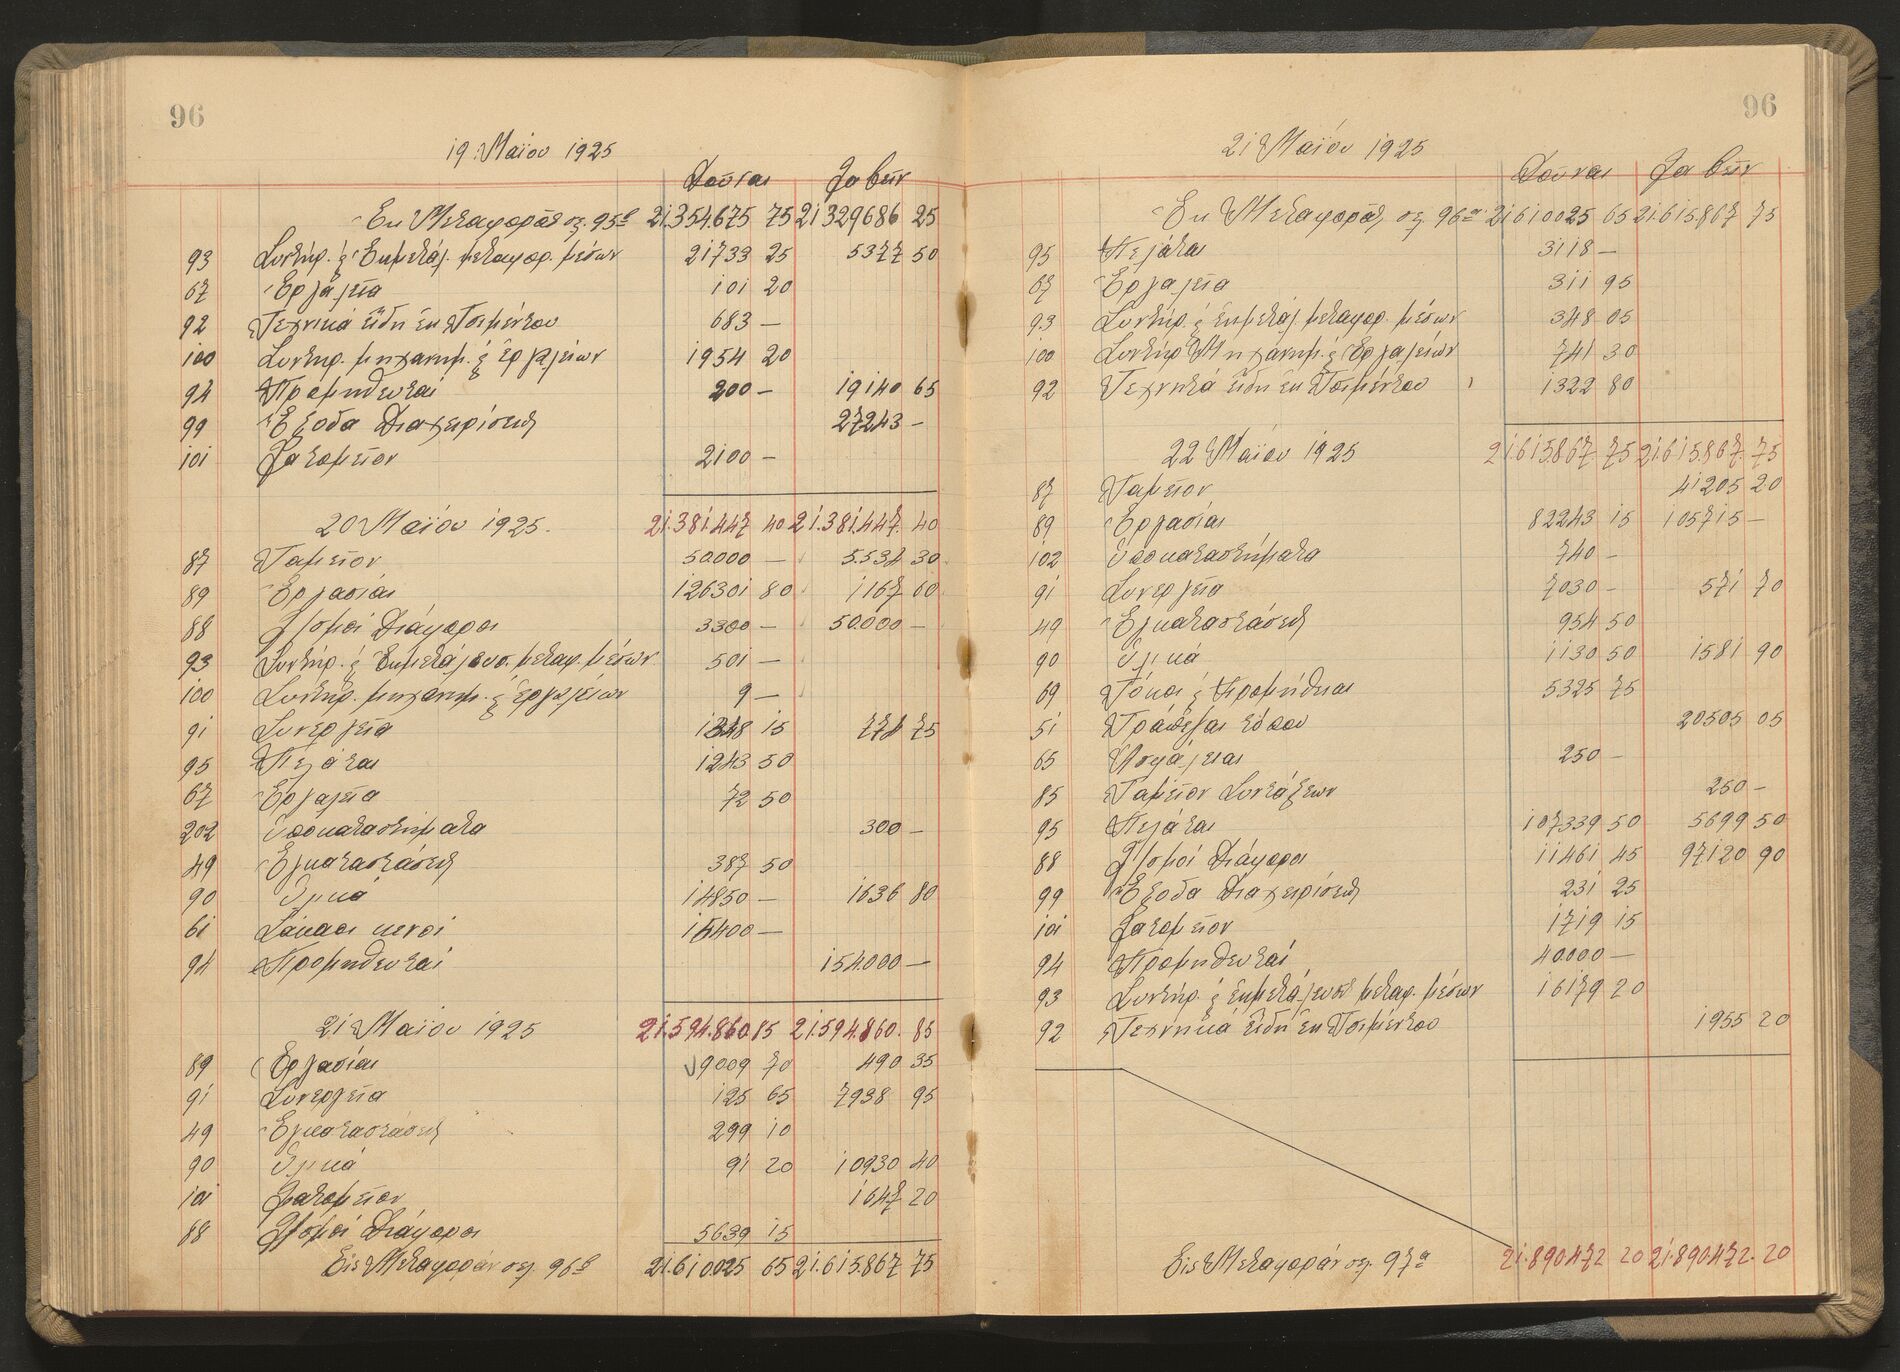 96
19 Μαΐου 1925
Δούναι Λαβείν
Εκ Μεταφοράς σελ. 95β 21.354.675 75 21329686 25
93 Συντήρ. & Εκμετάλ. μεταφορ. μέσων 21733 25 5377 50
67 Εργαλεία 101 20
92 Τεχνικά είδη εκ Τσιμέντου 683 —
100 Συντηρ. μηχανημ. & εργαλείων 1954 20
94 Προμηθευταί 200 — 19140 65
99 Έξοδα Διαχειρίσεως 27243 —
101 Λατομείον 2100 —
20 Μαΐου 1925. 21.381.447 40 21.381.447. 40
87 Ταμείον 50.000 — 5.534 30
89 Εργασίαι 126301 80 1167 60
88 Λ/σμοί Διάφοροι 3300 — 50.000 —
93 Συντήρ. & Εκμετάλευσ. μεταφ. μέσων 501 —
100 Συντηρ. μηχανημ. & εργαλείων 9 —
91 Συνεργεία 1348 15 774 75
95 Πελάται 1243 50
67 Εργαλεία 72 50
202 Υποκαταστήματα 300 —
49 Εγκαταστάσεις 387 50
90 Υλικά 14850 — 1636 80
61 Σάκκοι κενοί 15400 —
94 Προμηθευταί 154.000 —
21 Μαΐου 1925 21.594.860. 85 21.594.860. 85
89 Εργασίαι 9009 70 490 35
91 Συνεργεία 125 65 7938 95
49 Εγκαταστάσεις 299 10
90 Υλικά 91 20 10930 40
101 Λατομείον 1647 20
88 Λ/σμοί Διάφοροι 5639 15
Εις Μεταφοράν σελ. 96β 21.610.025 65 21.615.867 75
96
21 Μαΐου 1925
Δούναι Λαβείν
Εκ Μεταφοράς σελ. 96α 21610025 65 21.615.867 75
95 Πελάται 3118 —
67 Εργαλεία 311 95
93 Συντήρ. & εκμετάλ. μεταφορ. μέσων 348 05
100 Συντήρ. Μηχανημ. & Εργαλείων 741 30
92 Τεχνητά είδη εκ Τσιμέντου 1322 80
22 Μαΐου 1925 21.615.867 75 21.615.867. 75
87 Ταμείον 41205 20
89 Εργασίαι 82243 15 105715 —
102 Υποκαταστήματα 740 —
91 Συνεργεία 7030 — 571 70
49 Εγκαταστάσεις 954 50
90 Υλικά 1130 50 1581 90
69 Τόκοι & Προμήθειαι 5325 75
51 Τράπεζαι τόπου 20505 05
65 Ασφάλειαι 250 —
85 Ταμείον Συντάξεων 250 —
95 Πελάται 107339 50 5699 50
88 Λ/σμοί Διάφοροι 11461 45 97120 90
99 Έξοδα Διαχειρίσεως 231 25
101 Λατομείον 1719 15
94 Προμηθευταί 40.000 —
93 Συντήρ. & εκμετάλευσ. μεταφ. μέσων 16179 20
92 Τεχνικά είδη εκ Τσιμέντου 1955 20
Εις Μεταφοράν σελ. 97α 21.890.472 20 21.890.472. 20